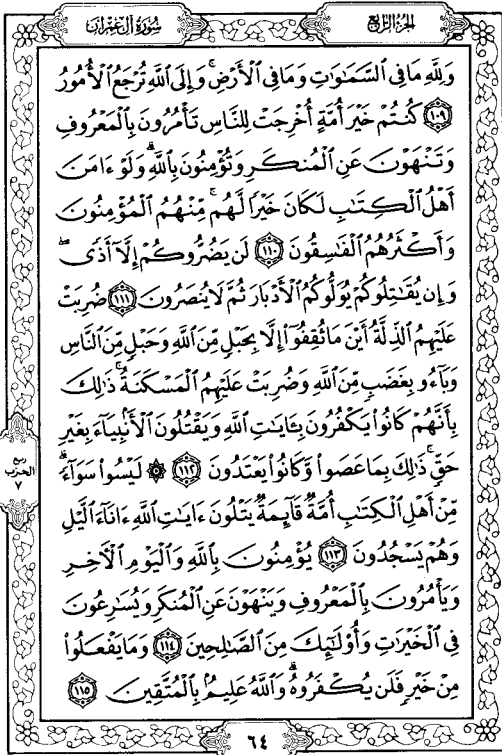 سُورَةُ آلِ عِمْرَان
الجُزْءُ الرَّابِعُ
وَلِلَّهِ مَا فِي السَّمَٰوَٰتِ وَمَا فِي الْأَرْضِ ۚ وَإِلَى اللَّهِ تُرْجَعُ الْأُمُورُ
١٠٩ كُنتُمْ خَيْرَ أُمَّةٍ أُخْرِجَتْ لِلنَّاسِ تَأْمُرُونَ بِالْمَعْرُوفِ
وَتَنْهَوْنَ عَنِ الْمُنكَرِ وَتُؤْمِنُونَ بِاللَّهِ ۗ وَلَوْ ءَامَنَ
أَهْلُ الْكِتَٰبِ لَكَانَ خَيْرًا لَّهُم ۚ مِّنْهُمُ الْمُؤْمِنُونَ
وَأَكْثَرُهُمُ الْفَٰسِقُونَ ١١٠ لَن يَضُرُّوكُمْ إِلَّآ أَذًى ۖ
وَإِن يُقَٰتِلُوكُمْ يُوَلُّوكُمُ الْأَدْبَارَ ثُمَّ لَا يُنصَرُونَ ١١١ ضُرِبَتْ
عَلَيْهِمُ الذِّلَّةُ أَيْنَ مَا ثُقِفُوٓا۟ إِلَّا بِحَبْلٍ مِّنَ اللَّهِ وَحَبْلٍ مِّنَ النَّاسِ
وَبَآءُو بِغَضَبٍ مِّنَ اللَّهِ وَضُرِبَتْ عَلَيْهِمُ الْمَسْكَنَةُ ۚ ذَٰلِكَ
بِأَنَّهُمْ كَانُوا۟ يَكْفُرُونَ بِـَٔايَٰتِ اللَّهِ وَيَقْتُلُونَ الْأَنۢبِيَآءَ بِغَيْرِ
حَقٍّ ۚ ذَٰلِكَ بِمَا عَصَوا۟ وَّكَانُوا۟ يَعْتَدُونَ ١١٢ ۞ لَيْسُوا۟ سَوَآءً ۗ
مِّنْ أَهْلِ الْكِتَٰبِ أُمَّةٌ قَآئِمَةٌ يَتْلُونَ ءَايَٰتِ اللَّهِ ءَانَآءَ الَّيْلِ
وَهُمْ يَسْجُدُونَ ١١٣ يُؤْمِنُونَ بِاللَّهِ وَالْيَوْمِ الْأَخِرِ
وَيَأْمُرُونَ بِالْمَعْرُوفِ وَيَنْهَوْنَ عَنِ الْمُنكَرِ وَيُسَٰرِعُونَ
فِي الْخَيْرَٰتِ وَأُو۟لَٰٓئِكَ مِنَ الصَّٰلِحِينَ ١١٤ وَمَا يَفْعَلُوا۟
مِنْ خَيْرٍ فَلَن يُكْفَرُوهُ ۗ وَاللَّهُ عَلِيمٌۢ بِالْمُتَّقِينَ ١١٥
ربع
الحزب
٧
٦٤